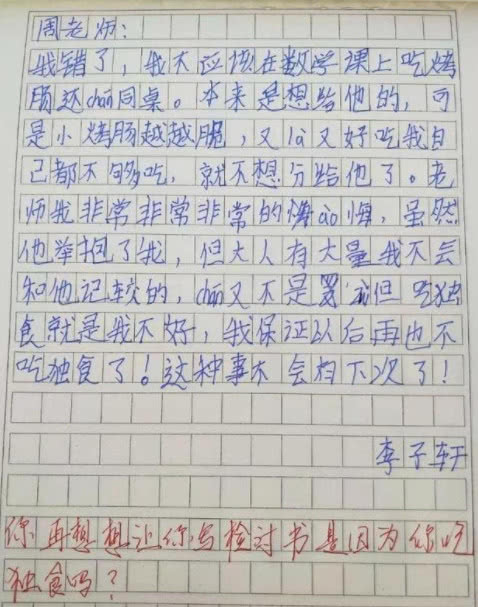 周老师:
我错了,我不应该在数学课上吃烤
肠还chán同桌。本来是想给他的,可
是小烤肠越越脆,又là又好吃我自
己都不够吃,就不想分给他了。老
师我非常非常非常的悔ào悔,虽然
他举抱了我,但大人有大量我不会
和他记较的,chán又不是罪 但吃独
食就是我不好,我保证以后再也不
吃独食了!这种事不会有下次了!
李子轩
你再想想让你写检讨书是因为你吃
独食吗?